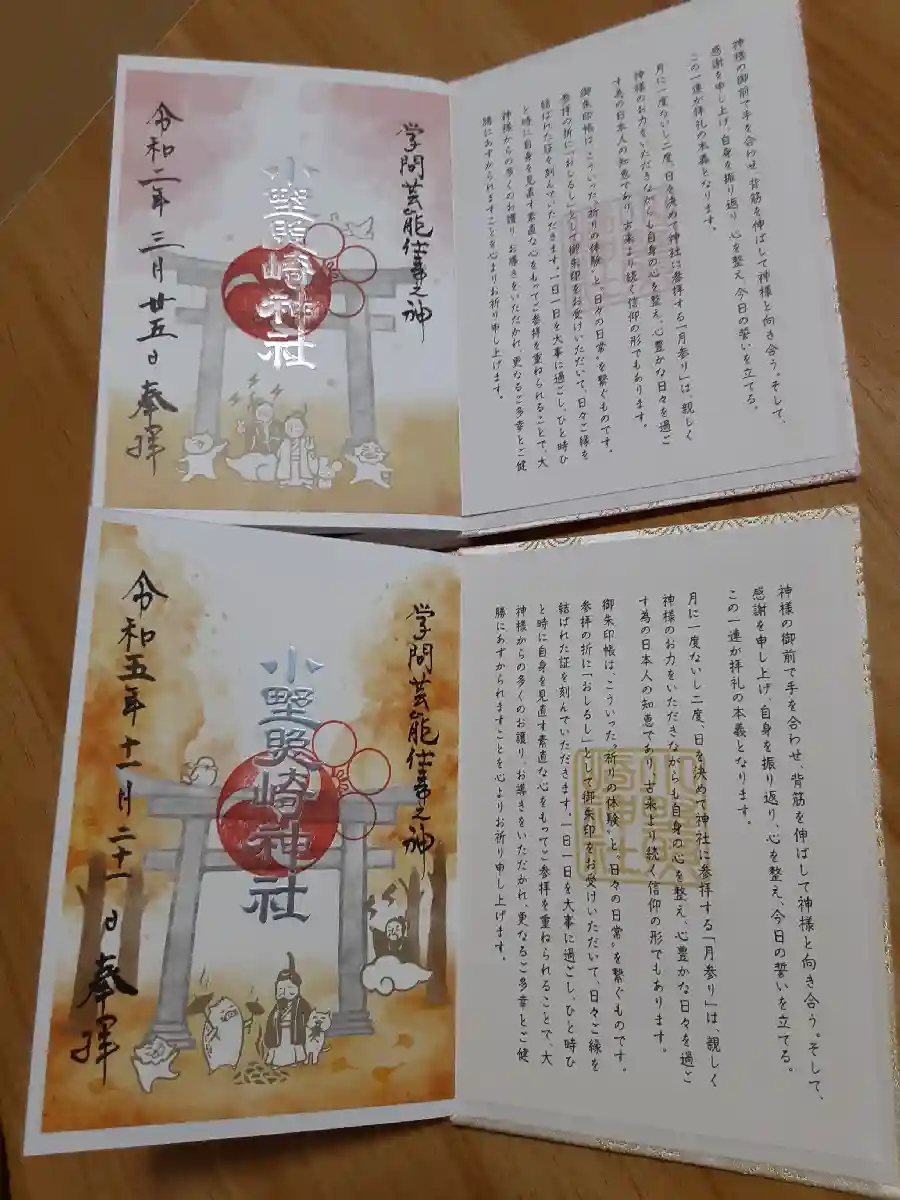 神様の御前で手を合わせ、背筋を伸ばして神様と向き合う。そして、
感謝を申し上げ、自身を振り返り、心を整え、今日の誓いを立てる。
この一連が拝礼の本義となります。
月に一度ないし二度、日を決めて神社に参拝する「月参り」は、親しく
神様のお力をいただきながらも自身の心を整え、心豊かな日々を過ご
す為の日本人の知恵であり、古来より続く信仰の形でもあります。
御朱印帳は、こういった“祈りの体験”と、“日々の日常”を繋ぐものです。
参拝の折に「おしるし」として御朱印をお受けいただいて、日々ご縁を
結ばれた証を刻んでいただきます。一日一日を大事に過ごし、ひと時ひ
と時に自身を見直す素直な心をもってご参拝を重ねられることで、大
神様からの多くのお護り、お導きをいただかれ、更なるご多幸とご健
勝にあずかられますことを心よりお祈り申し上げます。
学問芸能仕事之神
小野照崎神社
令和二年三月廿五日 奉拝
神様の御前で手を合わせ、背筋を伸ばして神様と向き合う。そして、
感謝を申し上げ、自身を振り返り、心を整え、今日の誓いを立てる。
この一連が拝礼の本義となります。
月に一度ないし二度、日を決めて神社に参拝する「月参り」は、親しく
神様のお力をいただきながらも自身の心を整え、心豊かな日々を過ご
す為の日本人の知恵であり、古来より続く信仰の形でもあります。
御朱印帳は、こういった“祈りの体験”と、“日々の日常”を繋ぐものです。
参拝の折に「おしるし」として御朱印をお受けいただいて、日々ご縁を
結ばれた証を刻んでいただきます。一日一日を大事に過ごし、ひと時ひ
と時に自身を見直す素直な心をもってご参拝を重ねられることで、大
神様からの多くのお護り、お導きをいただかれ、更なるご多幸とご健
勝にあずかられますことを心よりお祈り申し上げます。
学問芸能仕事之神
小野照崎神社
令和五年十一月二十一日 奉拝